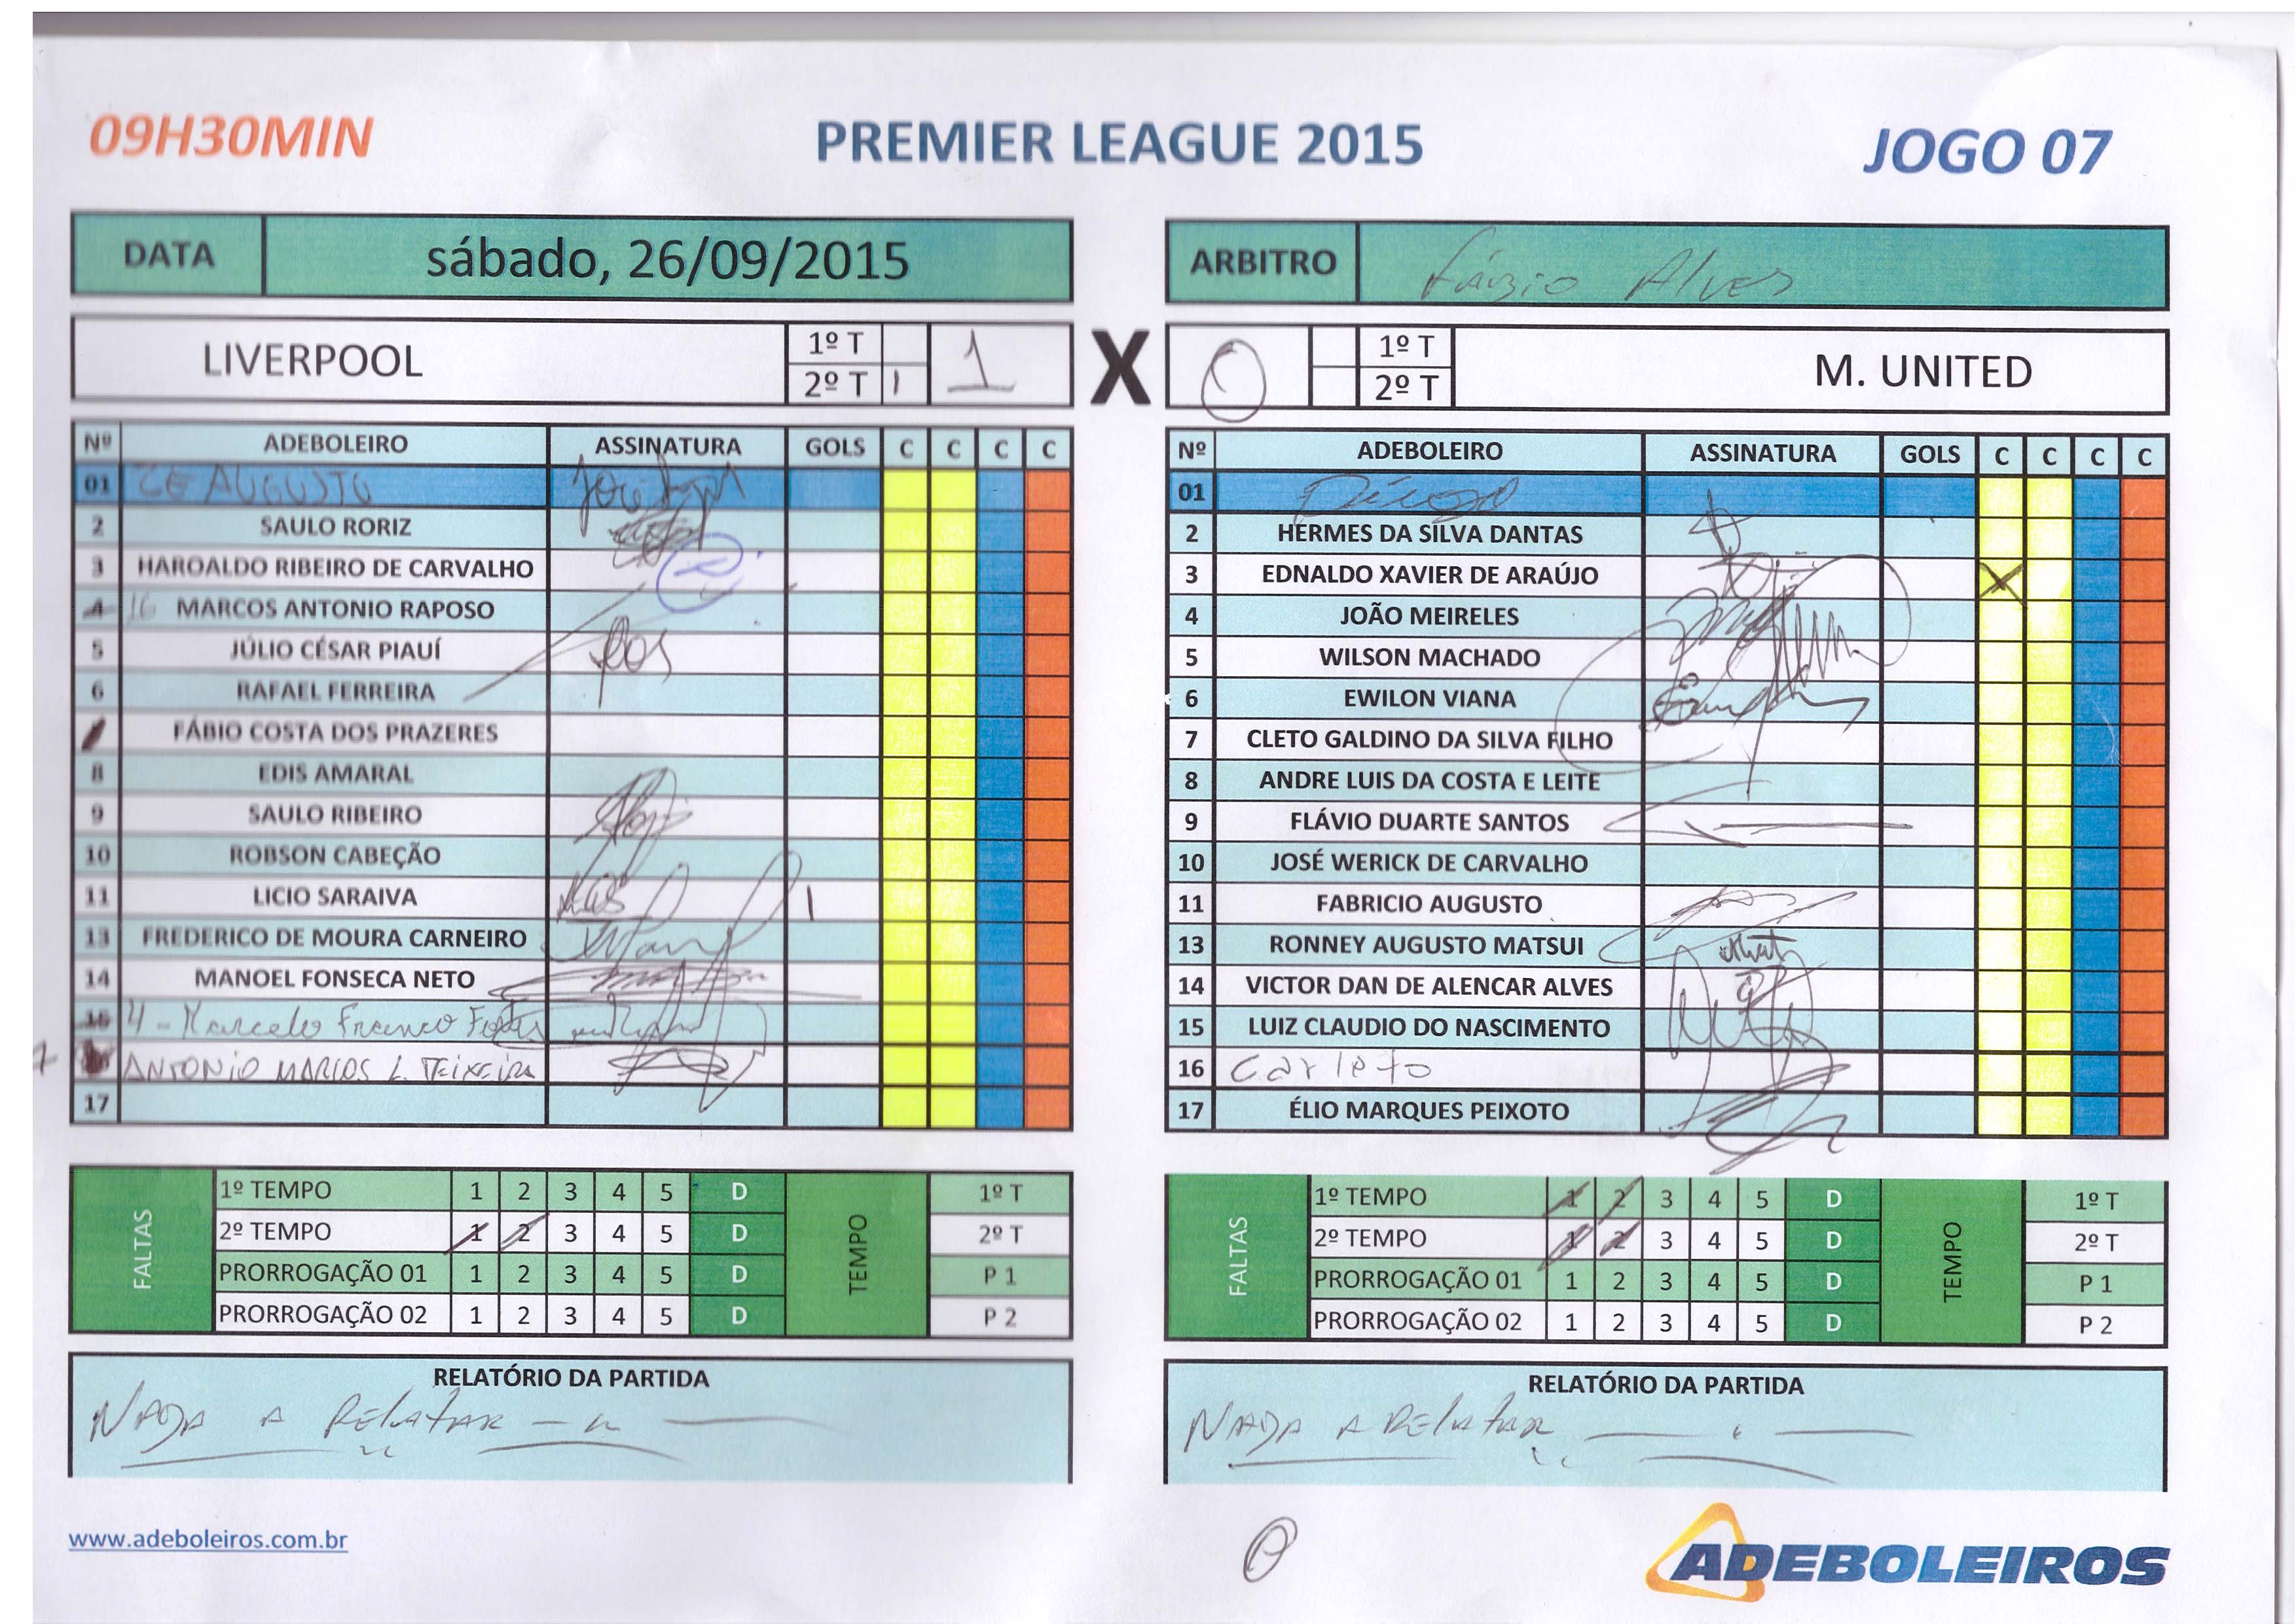 09H30MIN PREMIER LEAGUE 2015 JOGO 07
DATA sábado, 26/09/2015
ARBITRO Fábio Alves
LIVERPOOL 1º T 1 X 0 1º T M. UNITED
2º T 1 2º T
Nº ADEBOLEIRO ASSINATURA GOLS C C C C
01 ZE AUGUSTO
2 SAULO RORIZ
3 HAROALDO RIBEIRO DE CARVALHO
4 16 MARCOS ANTONIO RAPOSO
5 JÚLIO CÉSAR PIAUÍ
6 RAFAEL FERREIRA
FÁBIO COSTA DOS PRAZERES
8 EDIS AMARAL
9 SAULO RIBEIRO
10 ROBSON CABEÇÃO
11 LICIO SARAIVA 1
13 FREDERICO DE MOURA CARNEIRO
14 MANOEL FONSECA NETO
15 4 - Marcelo Franco
7 ANTONIO MARCOS L. TEIXEIRA
17
Nº ADEBOLEIRO ASSINATURA GOLS C C C C
01 Diego
2 HERMES DA SILVA DANTAS
3 EDNALDO XAVIER DE ARAÚJO X
4 JOÃO MEIRELES
5 WILSON MACHADO
6 EWILON VIANA
7 CLETO GALDINO DA SILVA FILHO
8 ANDRE LUIS DA COSTA E LEITE
9 FLÁVIO DUARTE SANTOS
10 JOSÉ WERICK DE CARVALHO
11 FABRICIO AUGUSTO
13 RONNEY AUGUSTO MATSUI
14 VICTOR DAN DE ALENCAR ALVES
15 LUIZ CLAUDIO DO NASCIMENTO
16 Carleto
17 ÉLIO MARQUES PEIXOTO
FALTAS
1º TEMPO 1 2 3 4 5 D
2º TEMPO 1 2 3 4 5 D
PRORROGAÇÃO 01 1 2 3 4 5 D
PRORROGAÇÃO 02 1 2 3 4 5 D
TEMPO
1º T
2º T
P 1
P 2
FALTAS
1º TEMPO 1 2 3 4 5 D
2º TEMPO 1 2 3 4 5 D
PRORROGAÇÃO 01 1 2 3 4 5 D
PRORROGAÇÃO 02 1 2 3 4 5 D
TEMPO
1º T
2º T
P 1
P 2
RELATÓRIO DA PARTIDA
NADA A RELATAR
RELATÓRIO DA PARTIDA
NADA A RELATAR
www.adeboleiros.com.br
ADEBOLEIROS